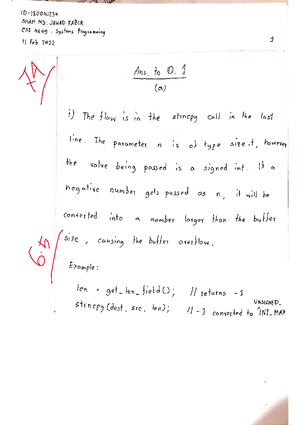 ID-180041234
SHAH MD. JAWAD KABIR
CSE 4649: Systems Programming
11 Feb 2022
1
Ans. to Q. 1
(a)
i) The flow is in the strncpy call in the last
line. The parameter n is of type size_t, however
the value being passed is a signed int. If a
negative number gets passed as n, it will be
converted into a number larger than the buffer
size, causing the buffer overflow.
6.5
Example:
len = get_len_field(); // returns -1
strncpy(dest, src, len); // -1 converted to UNSIGNED_INT_MAX